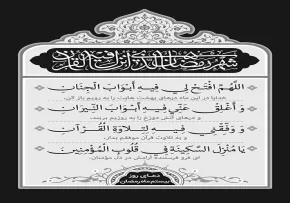 شهر رمضان الذي أنزل فيه القرآن
اللَّهُمَّ افْتَحْ لِي فِيهِ أَبْوَابَ الْجِنَانِ
خدایا در این ماه درهای بهشت هایت را به رویم باز کن
وَ أَغْلِقْ عَنِّي فِيهِ أَبْوَابَ النِّيرَانِ
و درهای آتش دوزخ را به رویم ببند
وَ وَفِّقْنِي فِيهِ لِتِلَاوَةِ الْقُرْآنِ
و به تلاوت قرآن موفقم بدار
يَا مُنْزِلَ السَّكِينَةِ فِي قُلُوبِ الْمُؤْمِنِينَ
ای فرو فرستنده آرامش در دل مؤمنان
دعای روز
بیستم ماه رمضان